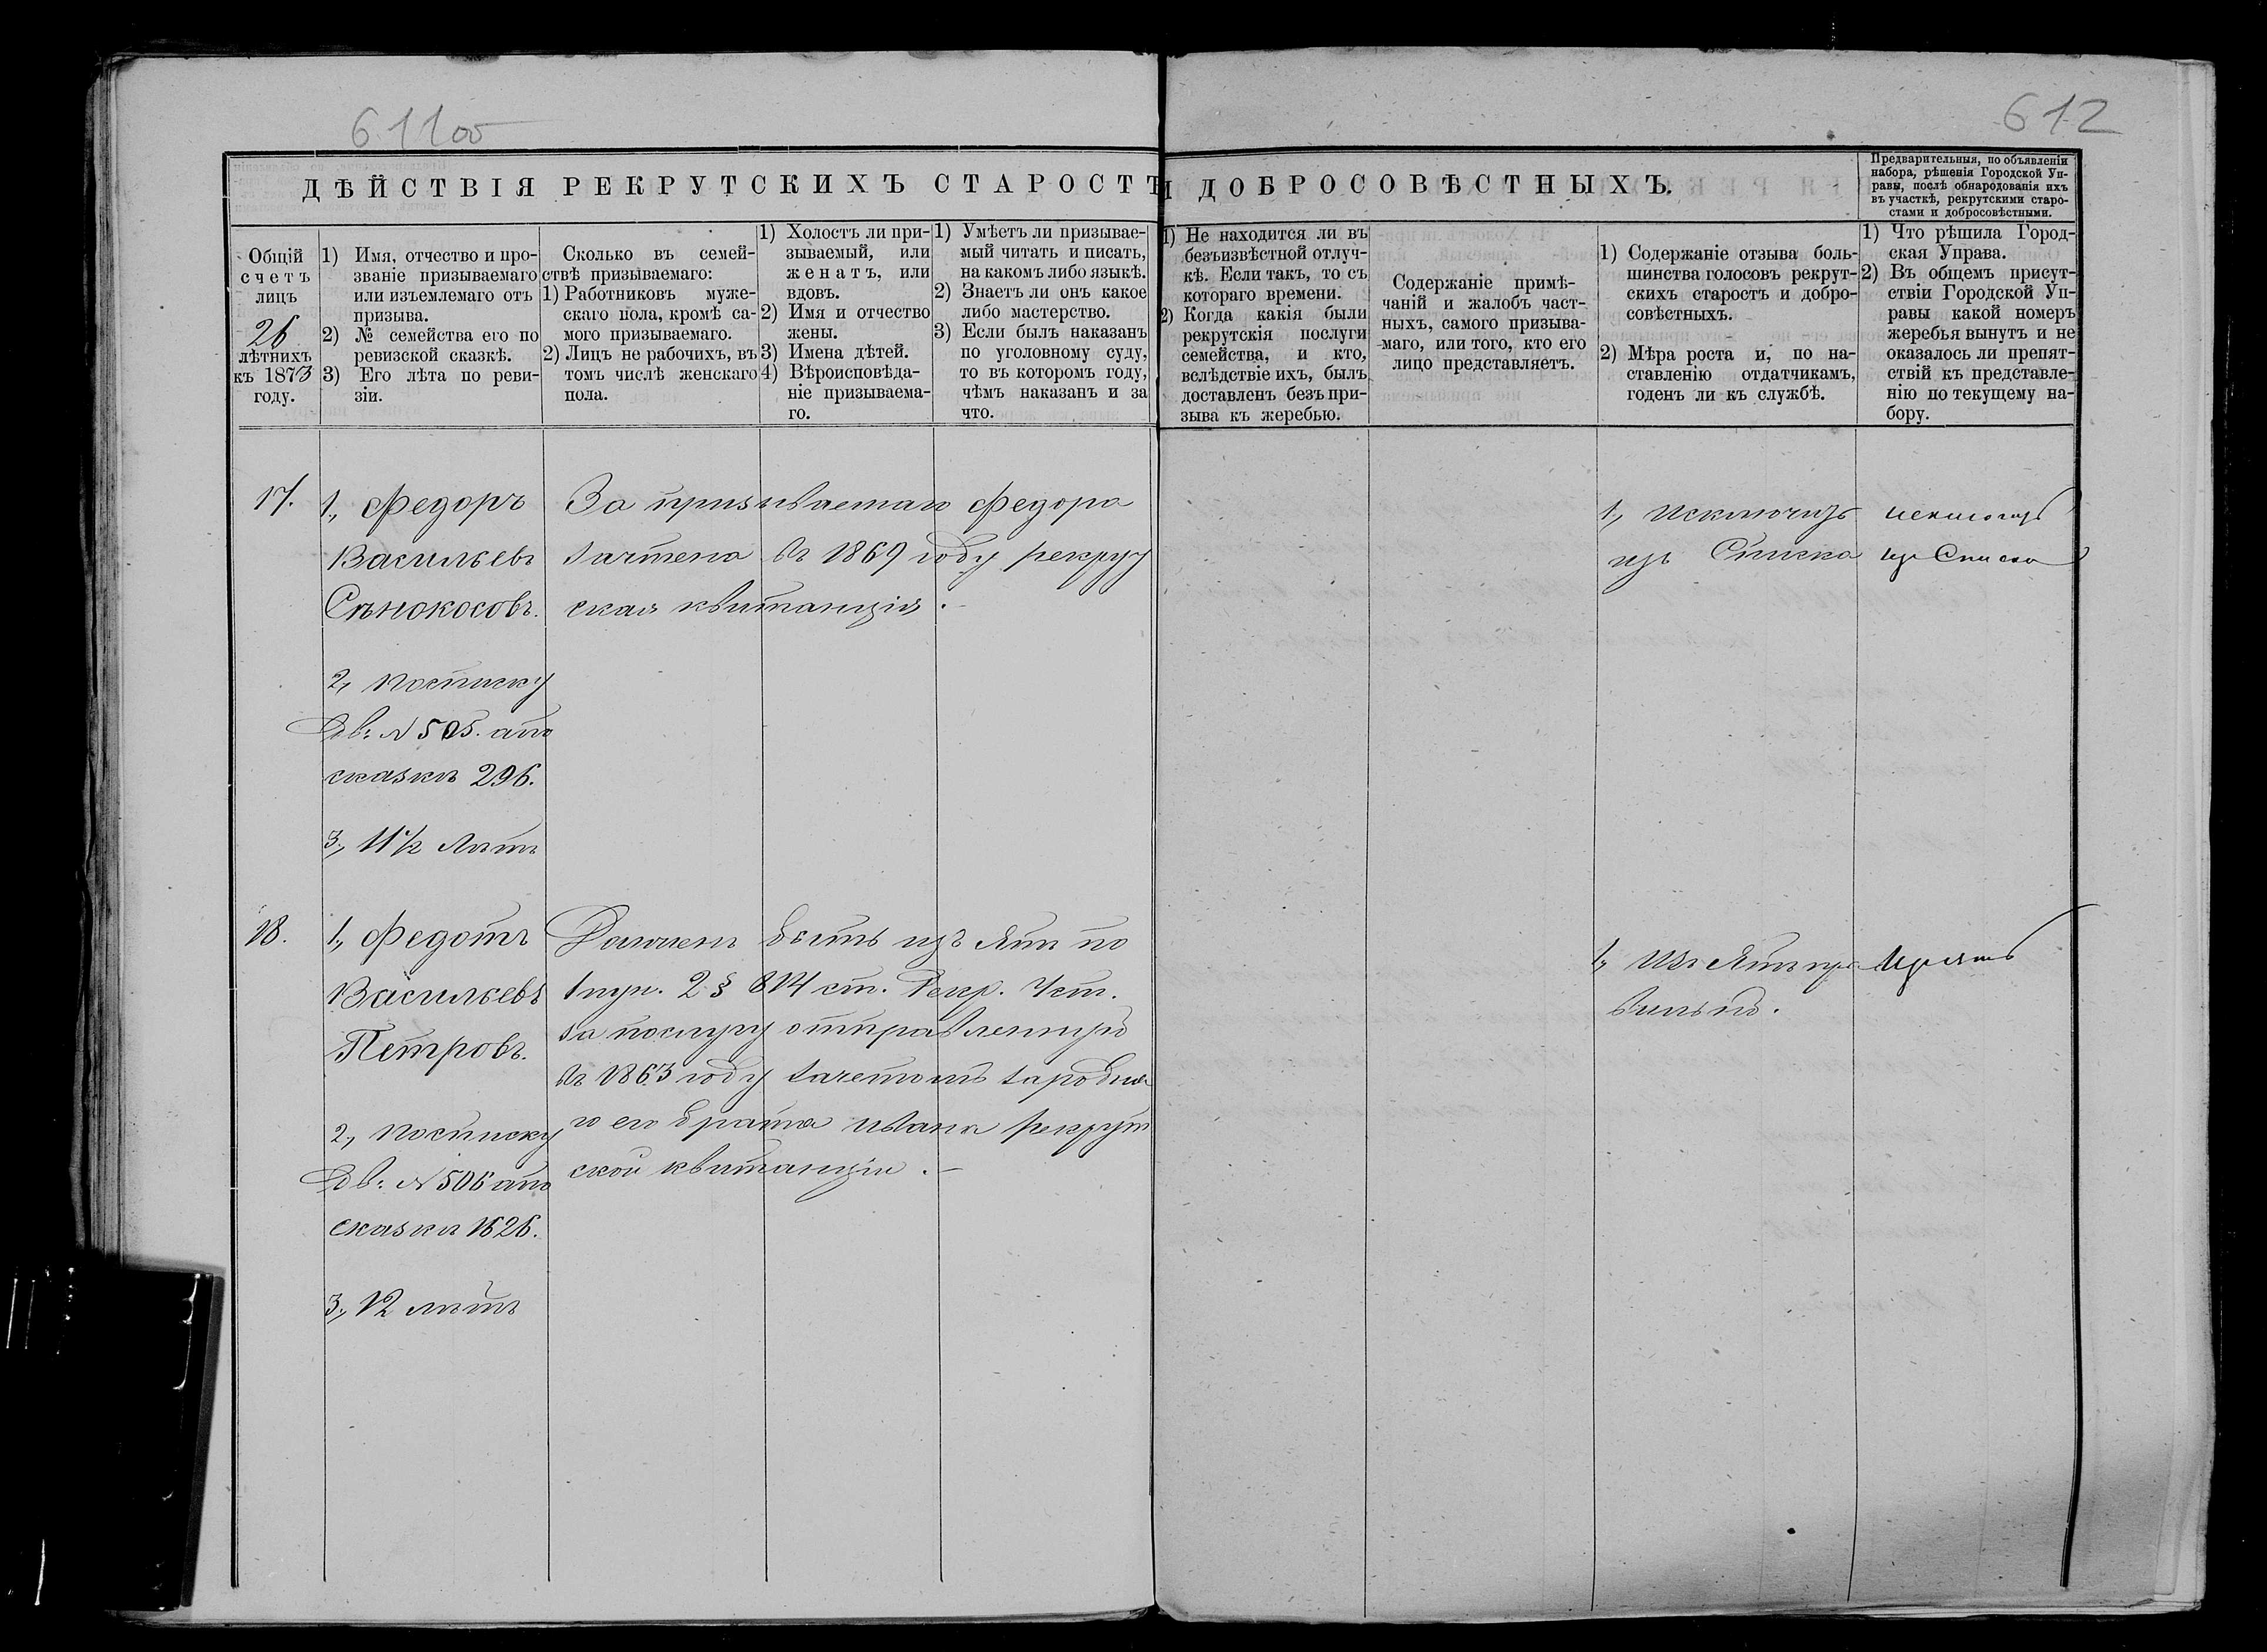 611об
612
ДѢЙСТВІЯ РЕКРУТСКИХЪ СТАРОСТЪ И ДОБРОСОВѢСТНЫХЪ.
Предварительныя, по объявленіи
набора, рѣшенія Городской Уп-
равы, послѣ обнародованія ихъ
въ участкѣ, рекрутскими старо-
стами и добросовѣстными.
Общій
счетъ
лицъ
26
лѣтнихъ
къ 1873
году.
1) Имя, отчество и про-
званіе призываемаго
или изъемлемаго отъ
призыва.
2) № семейства его по
ревизской сказкѣ.
3) Его лѣта по реви-
зіи.
Сколько въ семей-
ствѣ призываемаго:
1) Работниковъ муже-
скаго пола, кромѣ са-
мого призываемаго.
2) Лицъ не рабочихъ, въ
томъ числѣ женскаго
пола.
1) Холостъ ли при-
зываемый, или
женатъ, или
вдовъ.
2) Имя и отчество
жены.
3) Имена дѣтей.
4) Вѣроисповѣда-
ніе призываема-
го.
1) Умѣетъ ли призывае-
мый читать и писать,
на какомъ либо языкѣ.
2) Знаетъ ли онъ какое
либо мастерство.
3) Если былъ наказанъ
по уголовному суду,
то въ которомъ году,
чѣмъ наказанъ и за
что.
1) Не находится ли въ
безъизвѣстной отлуч-
кѣ. Если такъ, то съ
котораго времени.
2) Когда какія были
рекрутскія послуги
семейства, и кто,
вслѣдствіе ихъ, былъ
доставленъ безъ при-
зыва къ жеребью.
Содержаніе примѣ-
чаній и жалобъ част-
ныхъ, самого призыва-
маго, или того, кто его
лицо представляетъ.
1) Содержаніе отзыва боль-
шинства голосовъ рекрут-
скихъ старостъ и добро-
совѣстныхъ.
2) Мѣра роста и, по на-
ставленію отдатчикамъ,
годенъ ли къ службѣ.
1) Что рѣшила Город-
ская Управа.
2) Въ общемъ присут-
ствіи Городской Уп-
равы какой номеръ
жеребья вынутъ и не
оказалось ли препят-
ствій къ представле-
нію по текущему на-
бору.
17.
1, Федоръ
Васильевъ
Сѣнокосовъ.
2, Посписку
Дв: N 505. апо
сказкѣ 296.
3, 11½ Лѣтъ
За призываемаго Федора
зачтена въ 1869 году рекрут
ская квитанція.
1, Исключить
изъ Списка
исключить
изъ Списка
18.
1, Федотъ
Васильевъ
Петровъ.
2, Посписку
Дв: N 506 апо
сказкѣ 1626.
3, 12 лѣтъ
Должен быть изъ Ятъ по
1 пун. 2 § 814 ст. Рекр. Уст.
за послугу отправленную
въ 1863 году зачетомъ зародна
го его брата Ивана Рекрут
ской квитанціи.
1, Изъ Ятъ пра
вильно.
Изъять